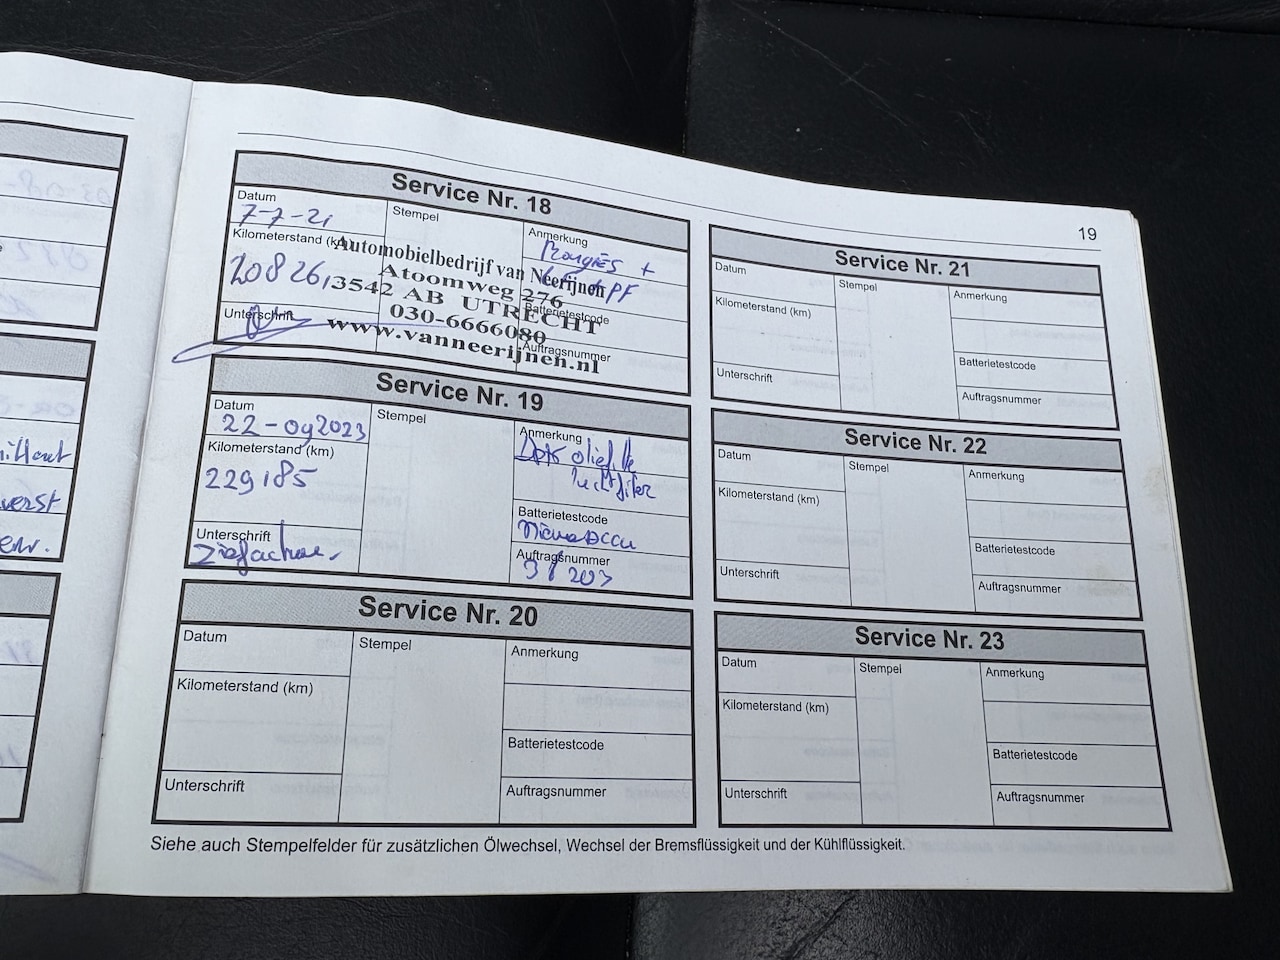 19
Service Nr. 18
Datum
7-7-21
Kilometerstand (km)
208261
Unterschrift
Stempel
Automobielbedrijf van Neerijnen
Atoomweg 276
3542 AB UTRECHT
030-6666080
www.vanneerijnen.nl
Anmerkung
+
Batterietestcode
Auftragsnummer
Service Nr. 19
Datum
22-092023
Kilometerstand (km)
229185
Unterschrift
Stempel
Anmerkung
Batterietestcode
Auftragsnummer
Service Nr. 20
Datum
Kilometerstand (km)
Unterschrift
Stempel
Anmerkung
Batterietestcode
Auftragsnummer
Service Nr. 21
Datum
Kilometerstand (km)
Unterschrift
Stempel
Anmerkung
Batterietestcode
Auftragsnummer
Service Nr. 22
Datum
Kilometerstand (km)
Unterschrift
Stempel
Anmerkung
Batterietestcode
Auftragsnummer
Service Nr. 23
Datum
Kilometerstand (km)
Unterschrift
Stempel
Anmerkung
Batterietestcode
Auftragsnummer
Siehe auch Stempelfelder für zusätzlichen Ölwechsel, Wechsel der Bremsflüssigkeit und der Kühlflüssigkeit.